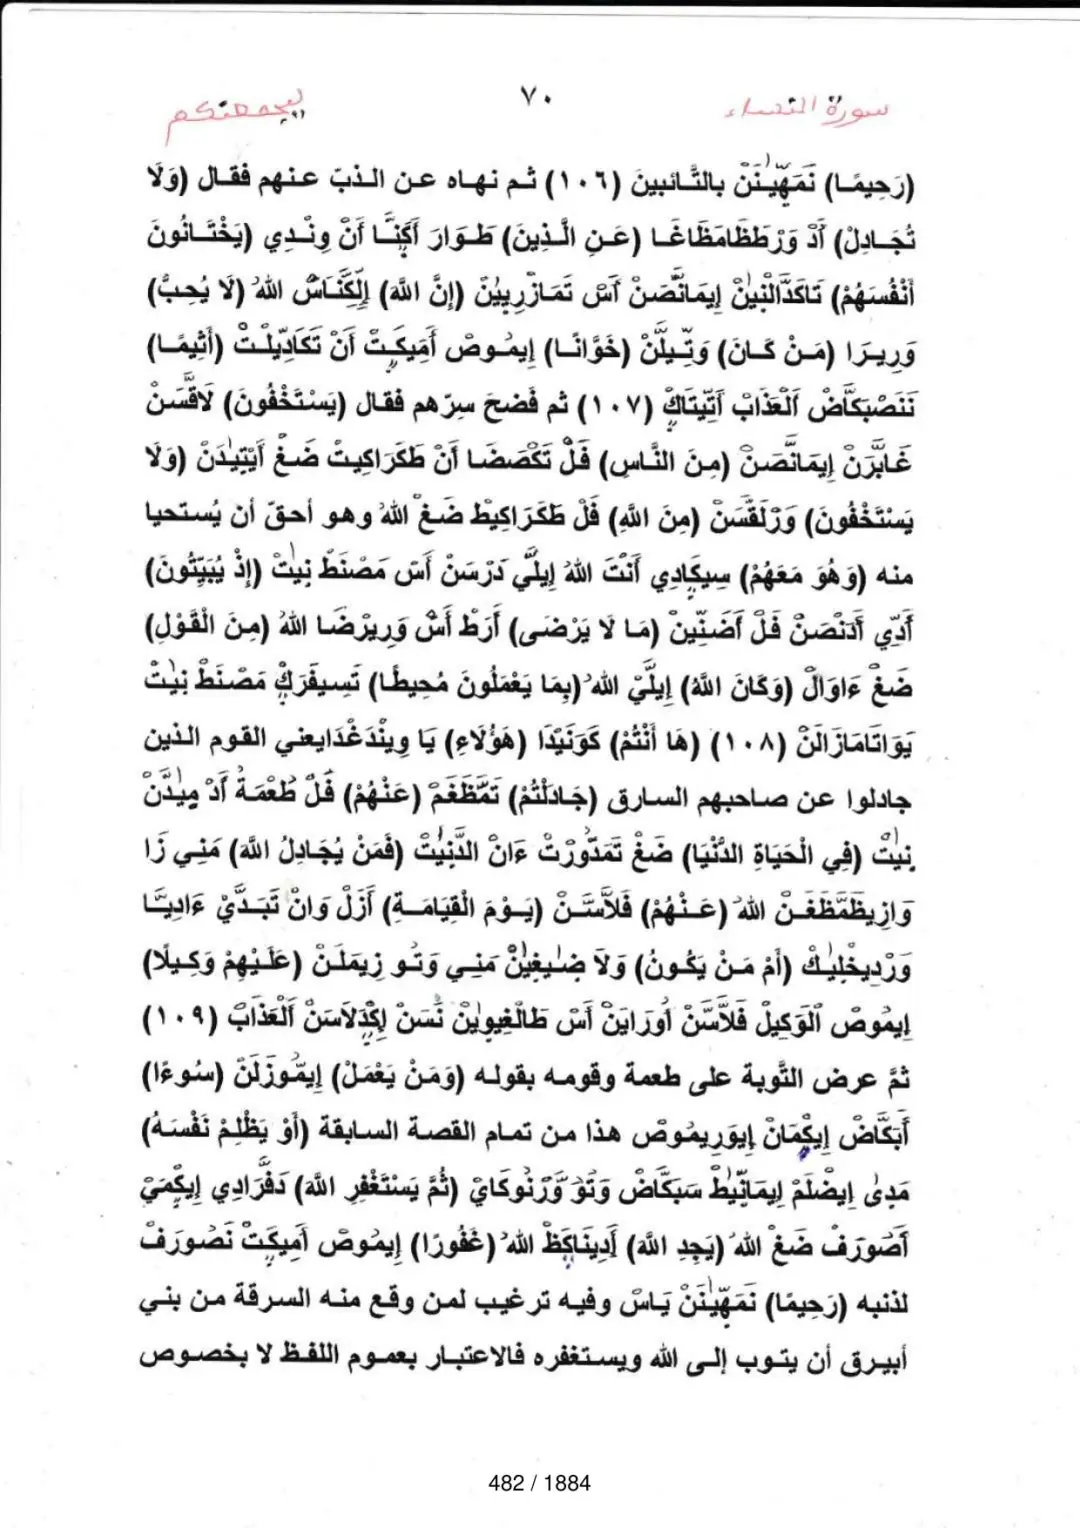 سورة النساء ٧٠ ليجمعنكم
(رَحِيمًا) نَمَهِّينَنْ بالتَّائبينَ (١٠٦) ثم نهاه عن الذبّ عنهم فقال (وَلَا
تُجَادِلْ) أَدْ وَرْطَظَامَظَاغَا (عَنِ الَّذِينَ) طَوَارَ أَكِنَّا أَنْ وِنْدِي (يَخْتَانُونَ
أَنْفُسَهُمْ) تَاكَدَّالْنِينْ إِيمَانَّصَنْ أَسْ تَمَازْرِيِينْ (إِنَّ اللَّهَ) إِلْكَنَاسْ اللهُ (لَا يُحِبُّ)
وَرِيرَا (مَنْ كَانَ) وَتِّيلَنْ (خَوَّانًا) إِيمُوصْ أَمِيكَتْ أَنْ تَكَادِّيلْتْ (أَثِيمًا)
نَنَصْبَكَّاضْ اَلْعَذَابْ اَتِّيتَاكْ (١٠٧) ثم فَضحَ سِرّهم فقال (يَسْتَخْفُونَ) لَاقَّسَنْ
غَابَّرَنْ إِيمَانَّصَنْ (مِنَ النَّاسِ) فَلْ تَكْصَضَا أَنْ طَكَرَاكِيتْ ضَغْ أَيْتِيدَنْ (وَلَا
يَسْتَخْفُونَ) وَرْلَقَّسَنْ (مِنَ اللَّهِ) فَلْ طَكَرَاكِيطْ ضَغْ اللهُ وهو أحقّ أن يُستحيا
منه (وَهُوَ مَعَهُمْ) سِيكَادِي أَنْتَ اللهُ إِيلَّيْ دَرْسَنْ أَسْ مَصْنَطْ نِيتْ (إِذْ يُبَيِّتُونَ)
أَدِّي أَدَنْصَنْ فَلْ أَضَنِّينْ (مَا لَا يَرْضَى) أَرَطْ أَسْ وَرِيرْضَا اللهُ (مِنَ الْقَوْلِ)
ضَغْ ءَاوَالْ (وَكَانَ اللَّهُ) إِيلَّيْ اللهُ (بِمَا يَعْمَلُونَ مُحِيطًا) تَسِيفَرَكْ مَصْنَطْ نِيتْ
يَوَاتَامَازَالَنْ (١٠٨) (هَا أَنْتُمْ) كَوَنَيْدَا (هَؤُلَاءِ) يَا وِينْدَغْدَايعني القوم الذين
جادلوا عن صاحبهم السارق (جَادَلْتُمْ) تَمَّظَغَمْ (عَنْهُمْ) فَلْ طُعْمَةُ أَدْ مِيدَّنْ
نِيتْ (فِي الْحَيَاةِ الدُّنْيَا) ضَغْ تَمَدُّورْتْ ءَانْ الدَّنِيْتْ (فَمَنْ يُجَادِلُ اللَّهَ) مَنِي زَا
وَازِيظَمَّظَغَنْ اللهُ (عَنْهُمْ) فَلاَّسَنْ (يَوْمَ الْقِيَامَةِ) أَزَلْ وَانْ تَبَدَّيْ ءَادِيَّا
وَرْدِيخْلِيكْ (أَمْ مَنْ يَكُونُ) وَلَا ضِلِيغِينْ مَنِي وَتُو زِيمَلَنْ (عَلَيْهِمْ وَكِيلًا)
إِيمُوصْ اَلْوَكِيلْ فَلاَّسَّنْ أُورَايَنْ أَسْ طَالْغِيوِينْ نَسَنْ لِكَدَّلَاسَنْ اَلْعَذَابْ (١٠٩)
ثمَّ عرض التَّوبة على طعمة وقومه بقوله (وَمَنْ يَعْمَلْ) إِيمُّوزَلَنْ (سُوءًا)
أَبَكَّاضْ إِيكْمَانْ إِيوَرِيمُوصْ هذا من تمام القصة السابقة (أَوْ يَظْلِمْ نَفْسَهُ)
مَدِىْ إِيضْلَمْ إِيمَانِّيطْ سَبَكَّاضْ وَتَوَ وَّرْنُوكَايْ (ثُمَّ يَسْتَغْفِرِ اللَّهَ) دَفَّرَادِي إِيكْمَيْ
أَصُورَفْ ضَغْ اللهُ (يَجِدِ اللَّهَ) أَدِينَاكَظْ اللهُ (غَفُورًا) إِيمُوصْ أَمِيكَتْ نَصُورَفْ
لذنبه (رَحِيمًا) نَمَهِّينَنْ يَاسْ وفيه ترغيب لمن وقع منه السرقة من بني
أبيرق أن يتوب إلى الله ويستغفره فالاعتبار بعموم اللفظ لا بخصوص
482 / 1884